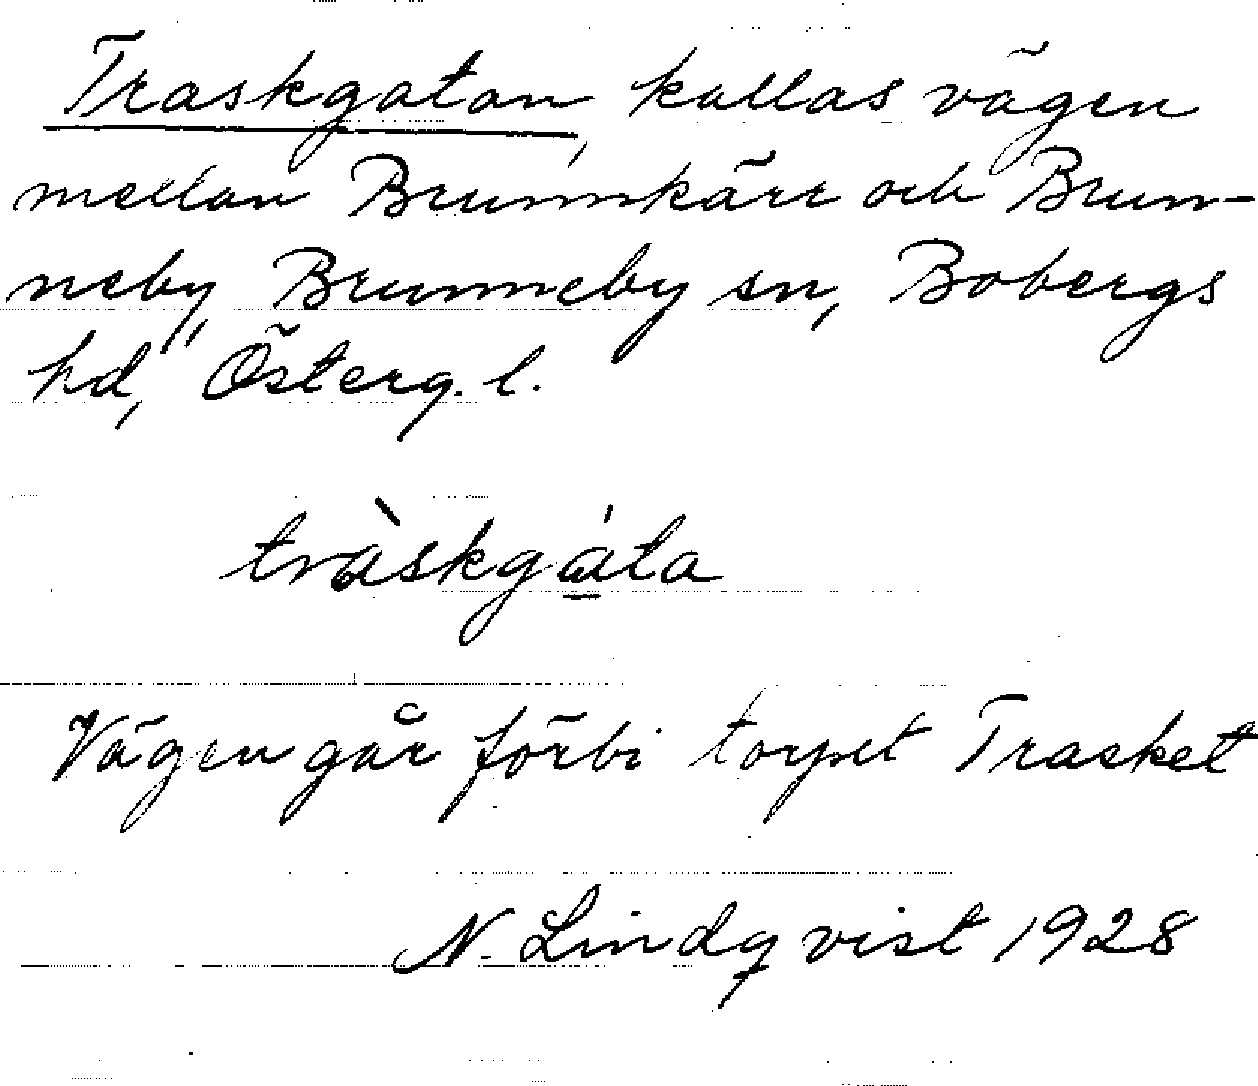 Traskgatan, kallas vägen
mellan Brunnkärr och Brun-
neby, Brunneby sn, Bobergs
hd, Österg. l.
tràskgáta
Vägen går förbi torpet Trasket
N. Lindqvist 1928